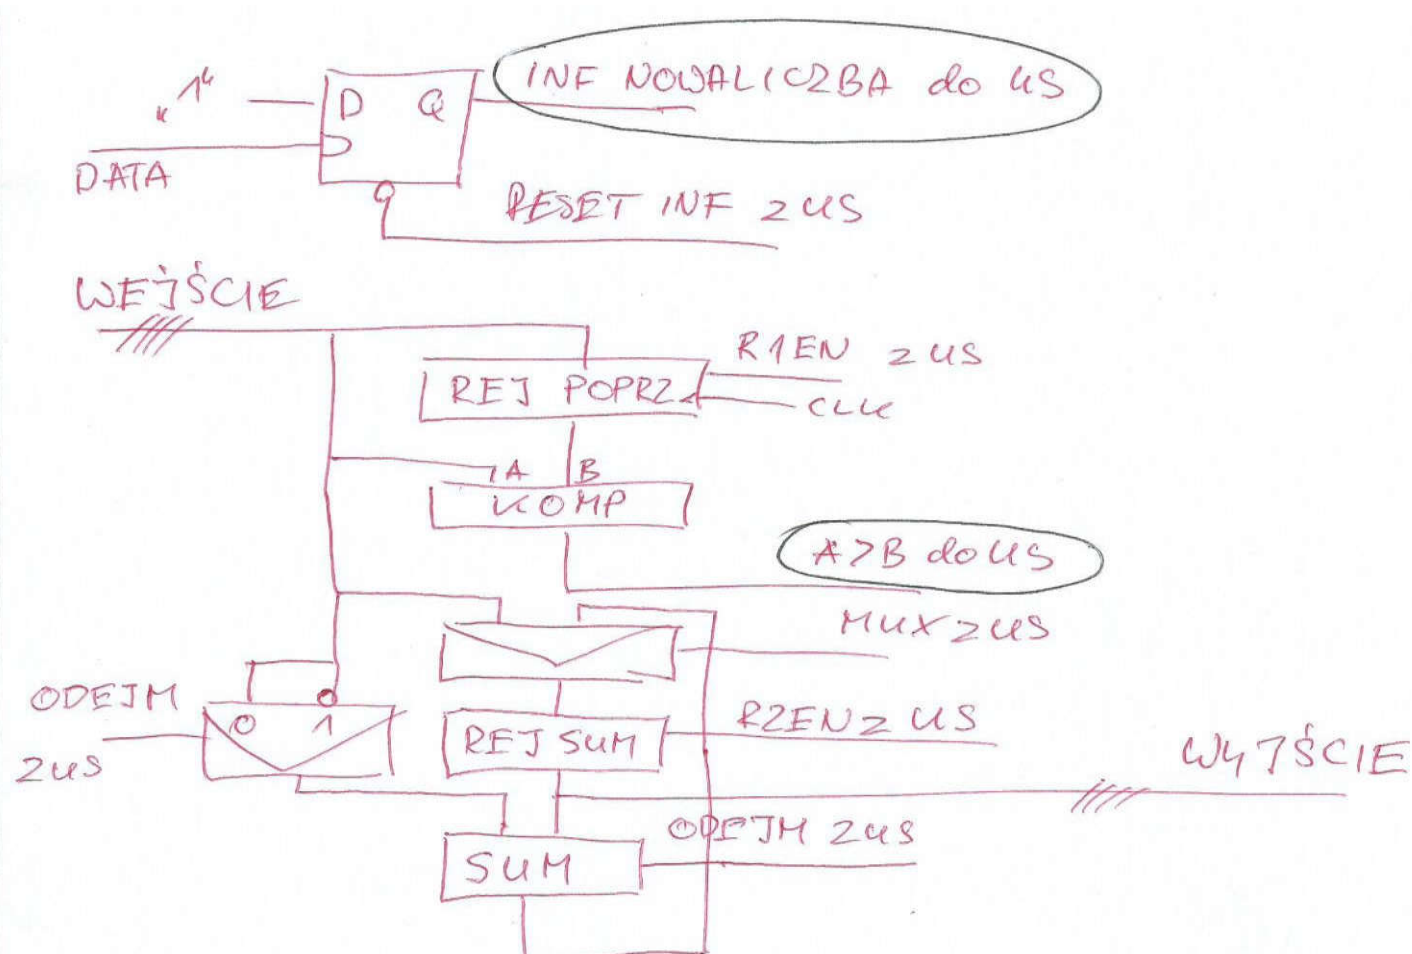 INF NOWALICZBA do US
„1“
D Q
DATA
RESET INF z US
WEJŚCIE
R1EN z US
REJ POPRZ
CLK
A B
KOMP
A>B do US
MUX z US
ODEJM
z US
0 1
R2EN z US
REJ SUM
WYJŚCIE
ODEJM z US
SUM